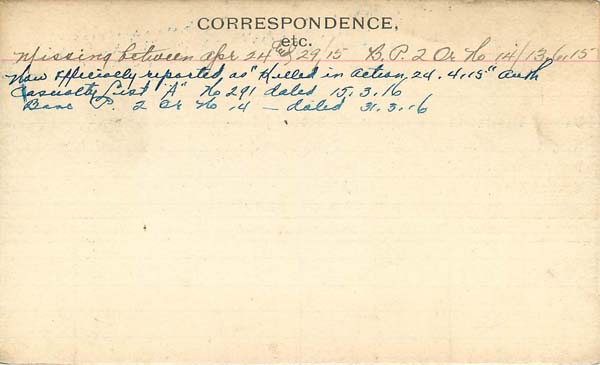 CORRESPONDENCE,
etc.
Missing between Apr 24th & 29/15 B.P. 2 Or No 14/13.6.15
Now Officially reported as "Killed in Action, 24.4.15" Auth
Casualty List "A" No 291 dated 15.3.16
Base P. 2 Or No 14 - dated 31.3.16